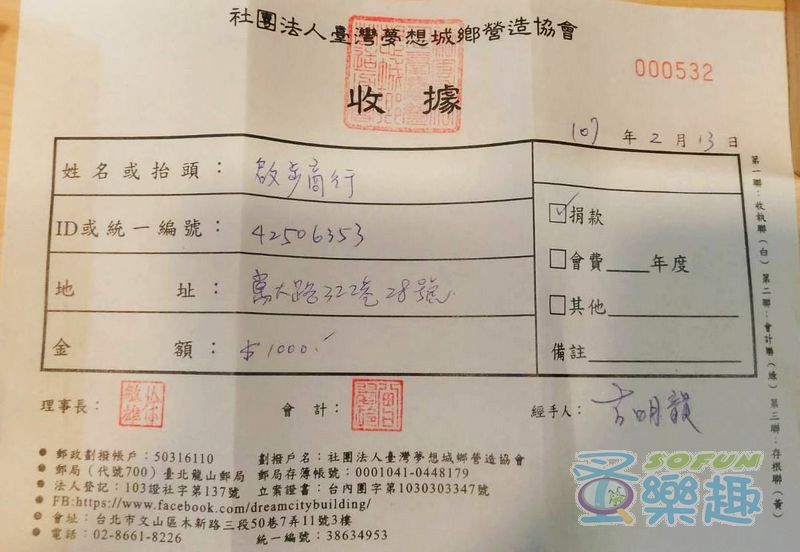 社團法人臺灣夢想城鄉營造協會
000532
收據
107年2月13日
姓名或抬頭：啟步商行
ID或統一編號：42506353
地址：萬大路322巷28號
金額：$1000.
☑捐款
□會費____年度
□其他
備註
第一聯：收執聯（白） 第二聯：會計聯（綠） 第三聯：存根聯（黃）
理事長： 會計： 經手人：
● 郵政劃撥帳戶：50316110 劃撥戶名：社團法人臺灣夢想城鄉營造協會
● 郵局（代號700）臺北龍山郵局 郵局存簿帳號：0001041-0448179
● 法人登記：103證社字第137號 立案證書：台內團字第1030303347號
● FB:https://www.facebook.com/dreamcitybuilding/
● 會址：台北市文山區木新路三段50巷7弄11號3樓
● 電話：02-8661-8226 統一編號：38634953
SOFUN
樂趣